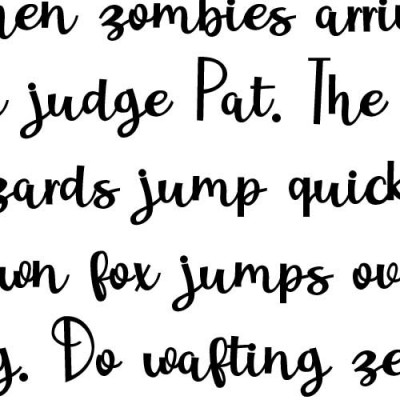 hen zombies arri
judge Pat. The
zards jump quick
wn fox jumps ov
g. Do wafting ze